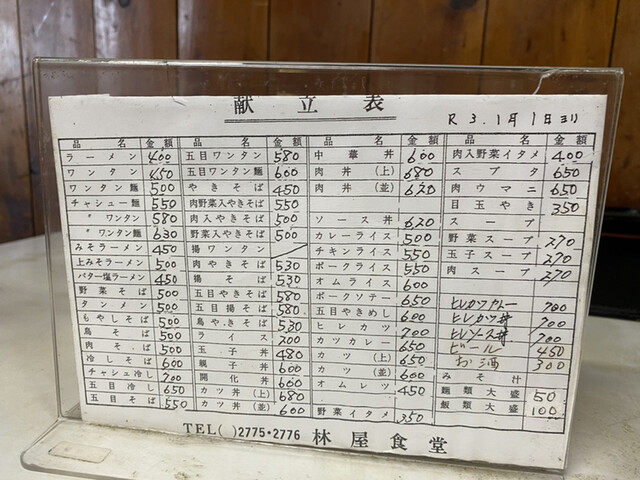 献立表
R3.1月1日ヨリ
品名 金額
ラーメン 400
ワンタン 450
ワンタン麺 500
チャシュー麺 550
〃ワンタン 580
〃ワンタン麺 630
みそラーメン 450
上みそラーメン 500
バター塩ラーメン 450
野菜そば 500
タンメン 500
もやしそば 500
鳥そば 500
肉そば 500
冷しそば 600
チャシュ冷し 700
五目冷し 650
五目そば 550
品名 金額
五目ワンタン 580
五目ワンタン麺 600
やきそば 450
肉野菜入やきそば 550
肉入やきそば 500
野菜入やきそば 500
揚ワンタン
肉やきそば 530
揚そば 530
五目やきそば 580
五目揚そば 580
鳥やきそば 530
ライス 200
玉子丼 480
親子丼 600
開化丼 600
カツ丼(上) 680
カツ丼(並) 600
品名 金額
中華丼 600
肉丼(上) 680
肉丼(並) 620
ソース丼 620
カレーライス 500
チキンライス 550
ポークライス 550
オムライス 600
ポークソテー 650
五目やきめし 600
ヒレカツ 700
カツカレー 650
カツ(上) 650
カツ(並) 600
オムレツ 450
野菜イタメ 350
品名 金額
肉入野菜イタメ 400
スブタ 650
肉ウマニ 650
目玉やき 350
スープ
野菜スープ 270
玉子スープ 270
肉スープ 270
ヒレカツカレー 900
ヒレカツ丼 700
ヒレソース丼 700
ビール 450
お酒 300
みそ汁
麺類大盛 50
飯類大盛 100
TEL( )2775・2776 林屋食堂